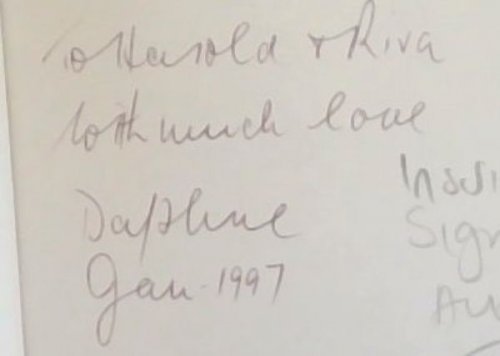 To Harold + Riva
With much love
Daphne
Jan 1997
Insc
Sign
Au